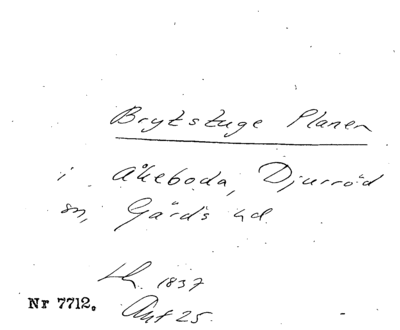 Brytstuge Planen
i Åkeboda, Djurröd
sn, Gärds hd
1837
Nr 7712.
Ant 25.